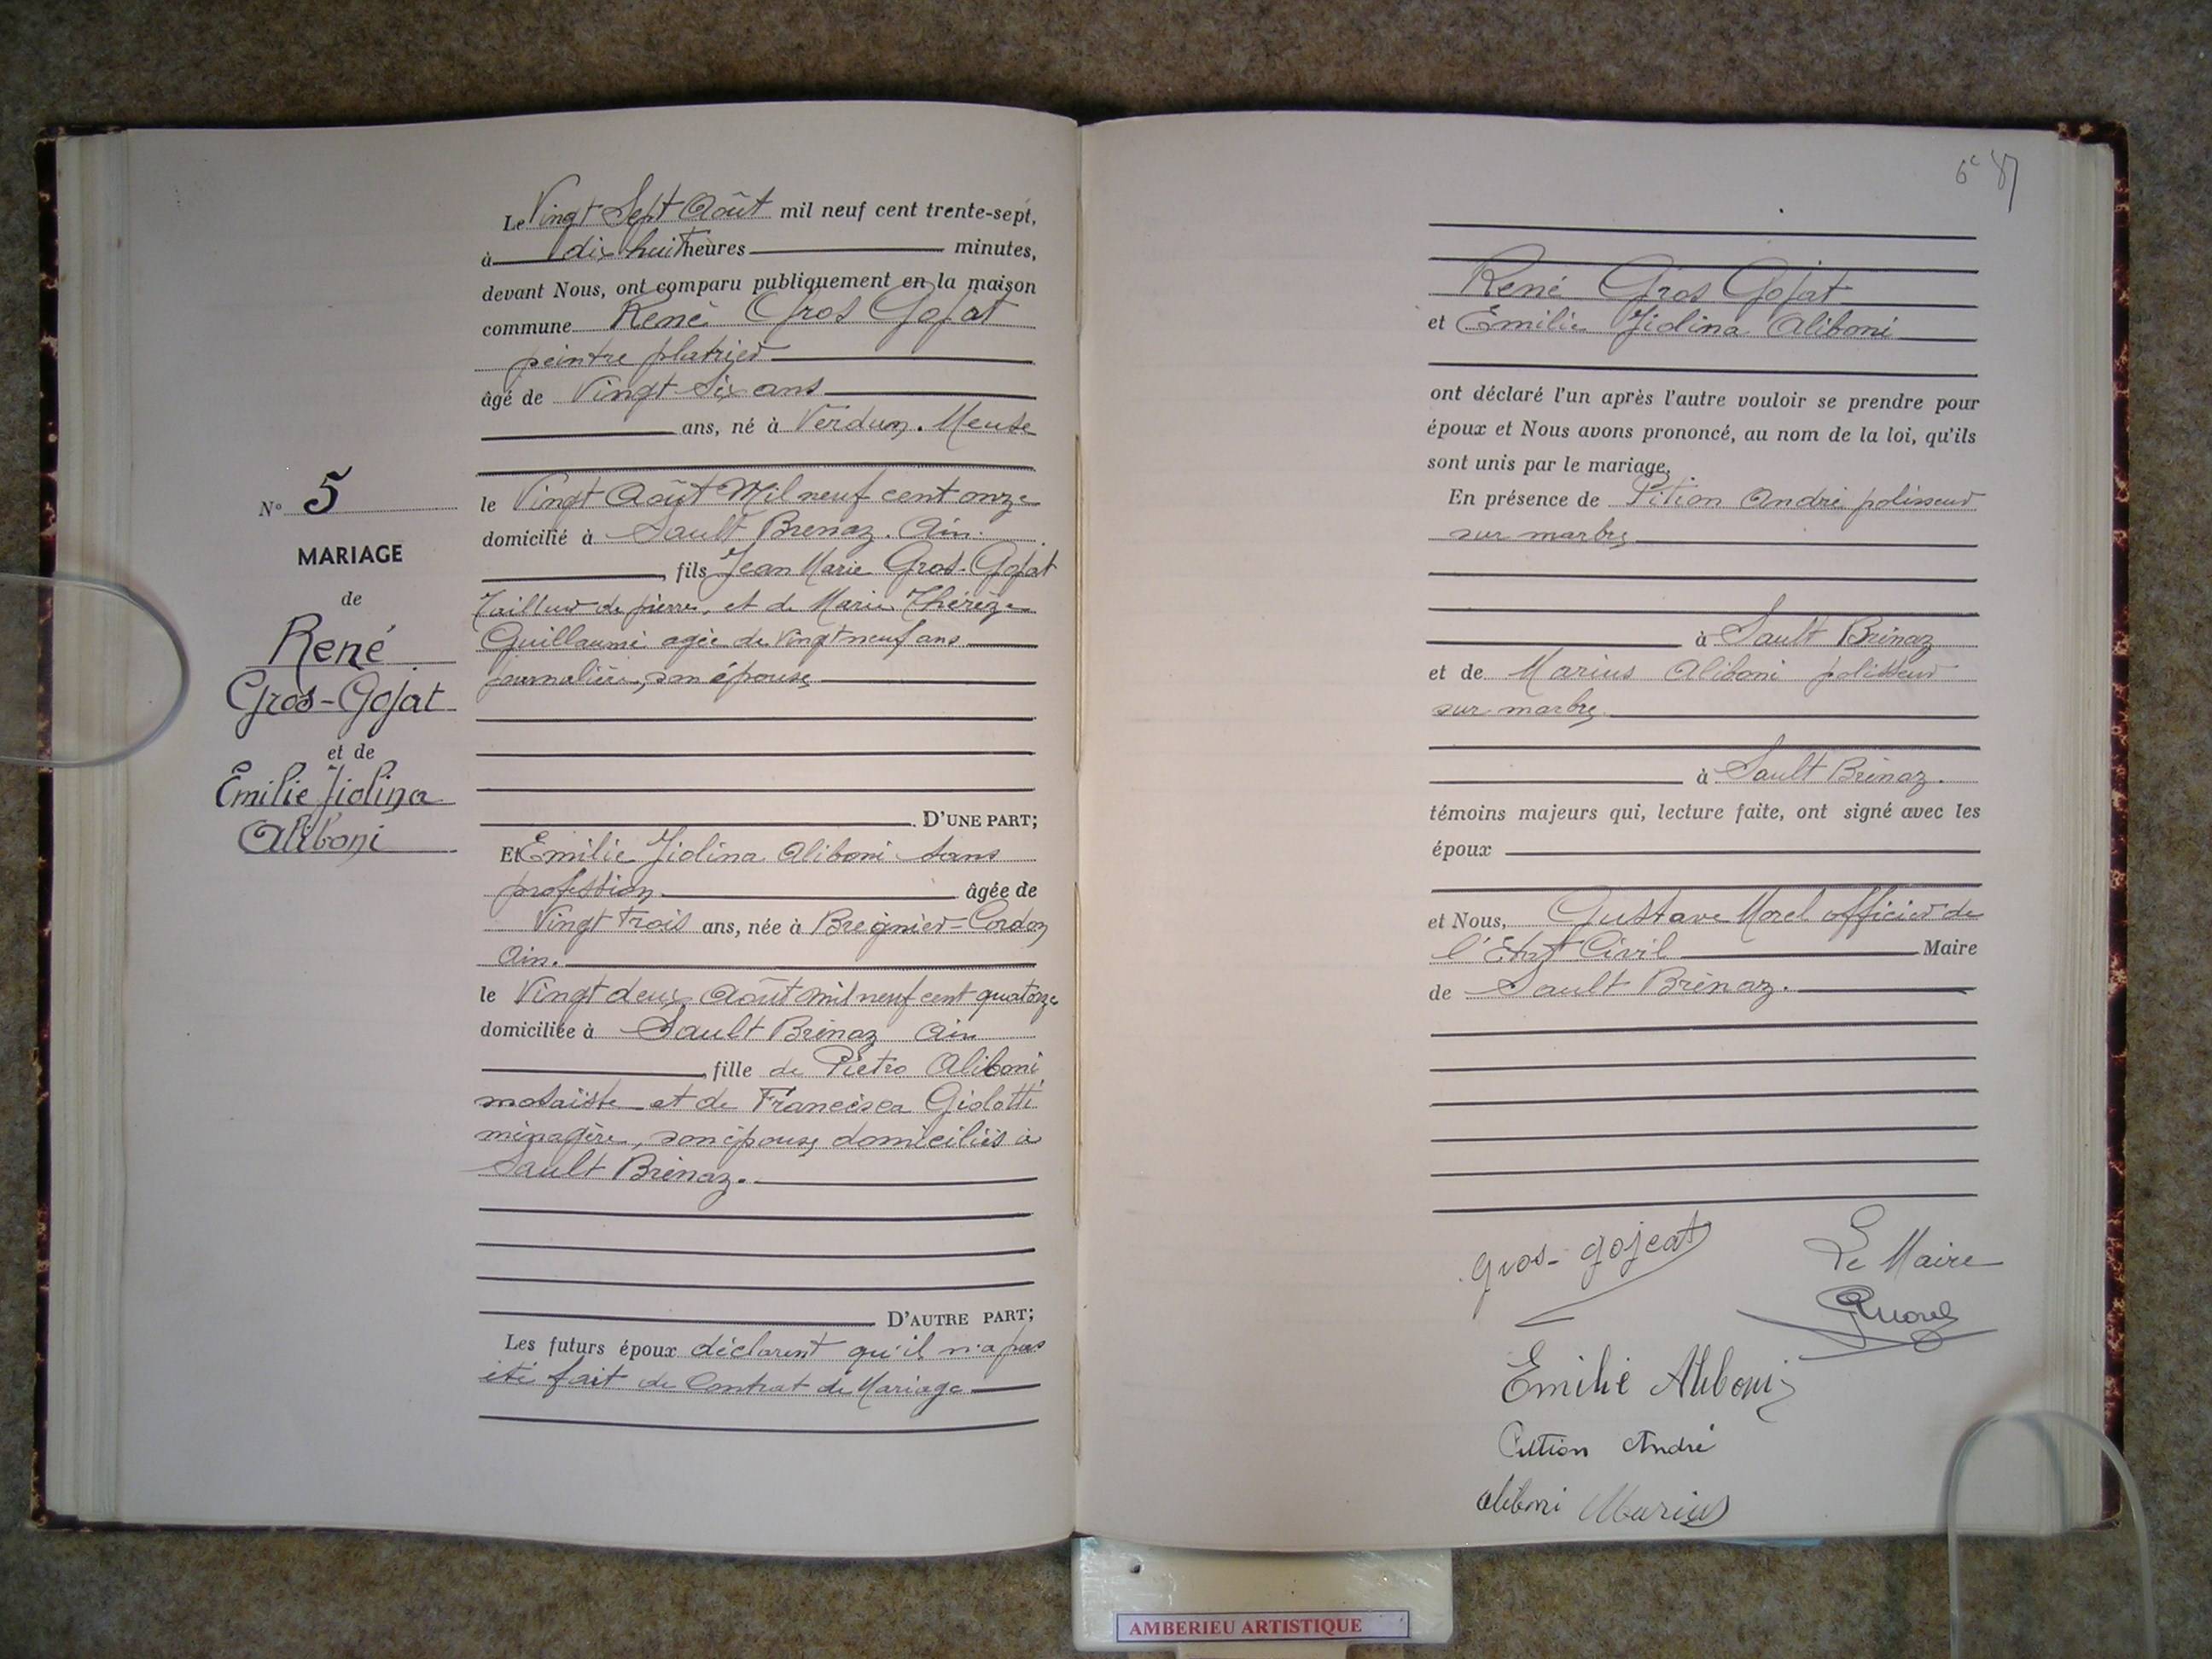 Le Vingt Sept Août mil neuf cent trente-sept,
à dix huit heures minutes,
devant Nous, ont comparu publiquement en la maison
commune René Gros Gojat
peintre platrier
âgé de Vingt Six ans
ans, né à Verdun. Meuse
le Vingt Août Mil neuf cent onze
domicilié à Sault Brenaz. Ain.
, fils Jean Marie Gros-Gojat
Tailleur de pierre, et de Marie Thérèze
Guillaumé agée de Vingt neuf ans
journalière, son épouse
D'UNE PART;
Et Emilie Jiolina Aliboni sans
profession âgée de
Vingt trois ans, née à Bregnier=Cordon
Ain.
le Vingt deux Août mil neuf cent quatorze
domiciliée à Sault Brénaz Ain
, fille de Piétro Aliboni
mosaïste et de Francisca Giolotti
ménagère, son épouse domiciliés à
Sault Brénaz.
D'AUTRE PART;
Les futurs époux déclarent qu'il n'a pas
été fait de Contrat de Mariage
N° 5
MARIAGE
de
René
Gros-Gojat
et de
Emilie Jiolina
Aliboni
René Gros Gojat
et Emilie Jiolina Aliboni
ont déclaré l'un après l'autre vouloir se prendre pour
époux et Nous avons prononcé, au nom de la loi, qu'ils
sont unis par le mariage.
En présence de Pition André polisseur
sur marbre
à Sault Brénaz
et de Marius Aliboni polisseur
sur marbre
à Sault Brénaz.
témoins majeurs qui, lecture faite, ont signé avec les
époux
et Nous, Gustave Morel officier de
l'Etat Civil Maire
de Sault Brénaz.
gros-gojeat
Le Maire
GMorel
Emilie Aliboni
Pition André
Aliboni Marius
AMBERIEU ARTISTIQUE